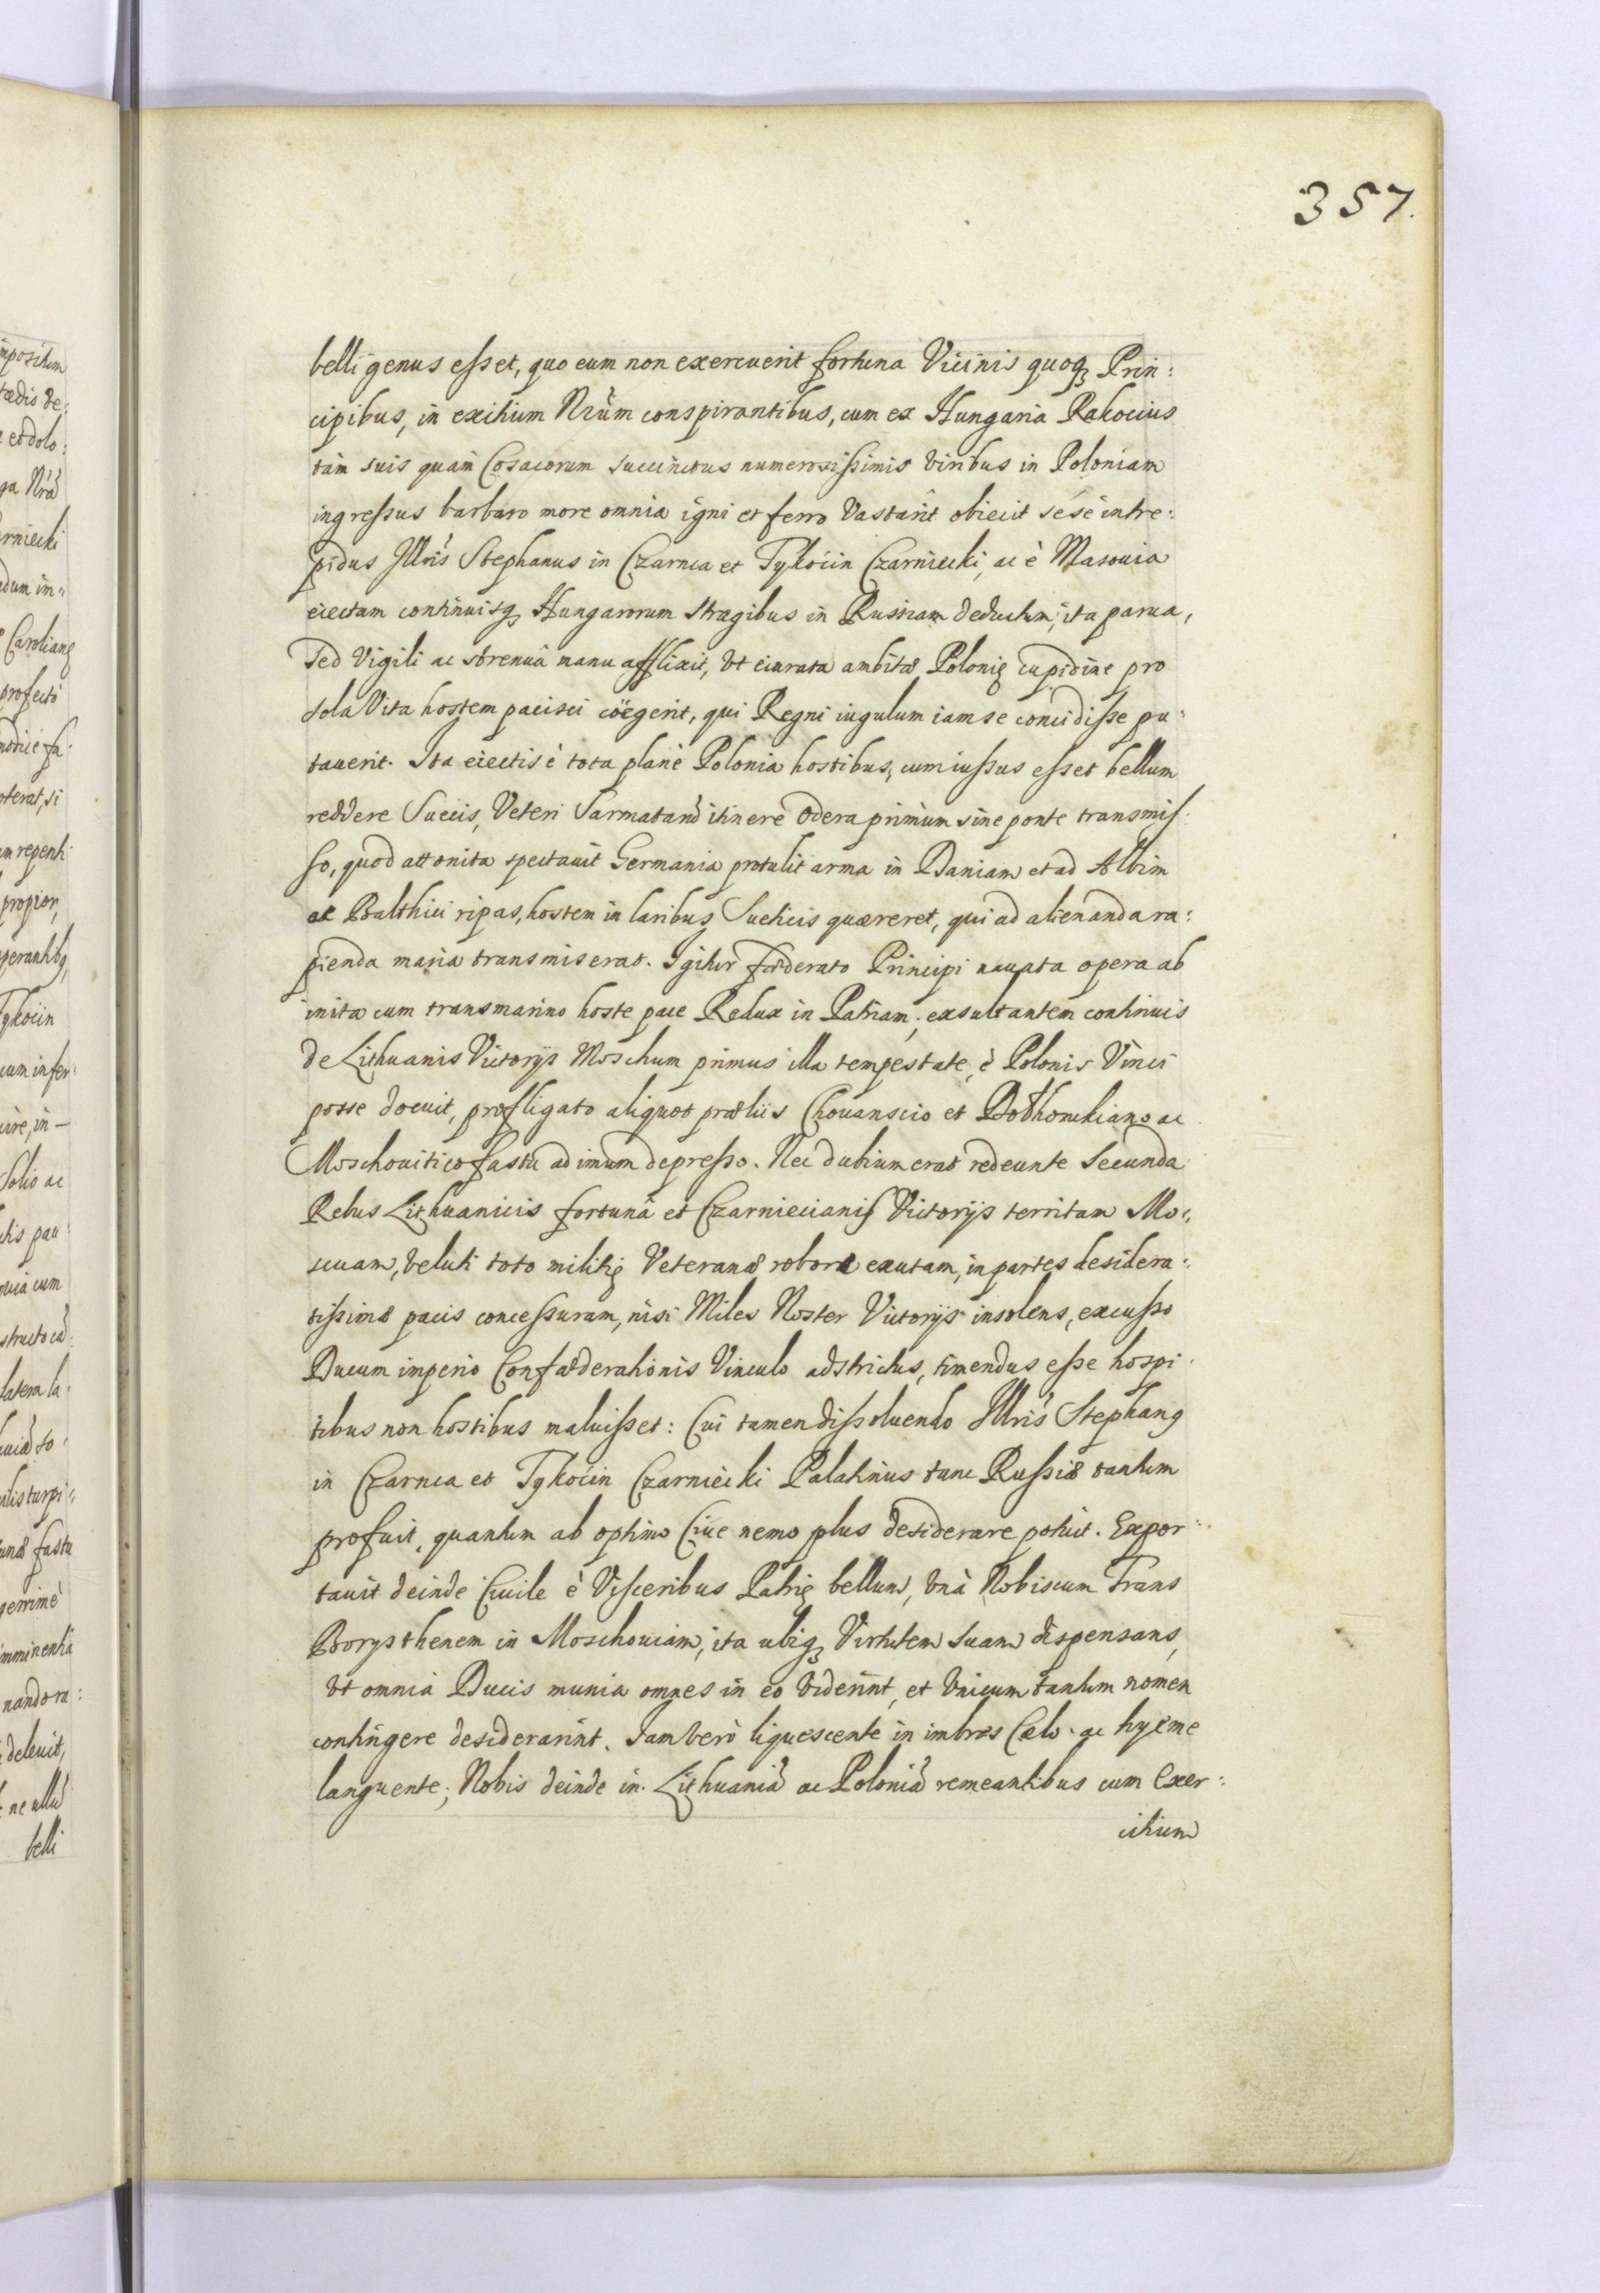 357.
belli genus esset, quo eum non exercuerit fortuna Vicinis quoq3 Prin:
cipibus, in exitium Nrũm conspirantibus, cum ex Hungaria Rakocius
tàm suis quàm Cosacorum succinctus numerosissimis viribus in Poloniam
ingressus barbaro more omnia igni et ferro Vastarit obiecit sese intre:
pidus Illris Stephanus in Czarnca et Tykocin Czarniecki, ac è Masouia
eiectum continuisq3 Hungarorum stragibus in Russiam deductum, ita parua,
sed Vigili ac strenuâ manu afflixit, Vt eiurata ambitæ Polonię cupidine pro
sola Vita hostem pacisci coëgerit, qui Regni iugulum iam se concidisse pu:
tauerit. Ita eiectis è tota planè Polonia hostibus, cum iussus esset bellum
reddere Suecis, Veteri Sarmatarũ itinere Odera primùm sine ponte transmis:
so, quod attonita spectauit Germania protulit arma in Daniam et ad Albim
ac Balthici ripas, hostem in laribus Suecicis quæreret, qui ad alienanda ra:
pienda maria transmiserat. Igitur fœderato Principi nauata opera ab
inita cum transmarino hoste pace Redux in Patriam, exsultantem continuis
de Lithuanis Victorijs Moschum primus illa tempestate, è Polonis Vinci
posse docuit, profligato aliquot prœliis Chouanscio et Dolhorukiano ac
Moschouitico fastu ad imum depresso. Nec dubium erat redeunte secunda
Rebus Lithuanicis fortunâ et Czarniecianis Victorijs territam Mo:
scuam, veluti toto militię Veteranæ robore exutam, in partes desidera:
tissimæ pacis concessuram, nisi Miles Noster Victorijs insolens, excusso
Ducum imperio Confœderationis Vinculo adstrictus, timendus esse hospi:
tibus non hostibus maluisset: Cui tamen dissoluendo Illris Stephanꝯ
in Czarnca et Tykocin Czarniecki Palatinus tunc Russiæ tantum
profuit, quantum ab optimo Ciue nemo plus desiderare potuit. Expor:
tauit deinde Ciuile è Visceribus Patrię bellum, vnà Nobiscum Trans
Borysthenem in Moschouiam, ita ubiq3 Virtutem suam dispensans,
vt omnia Ducis munia omnes in eo viderint, et vnicum tantum nomen
contingere desiderarint. Iam verò liquescente in imbres Cælo ac hyeme
languente, Nobis deinde in Lithuaniã ac Poloniã remeantibus cum Exer:
citum